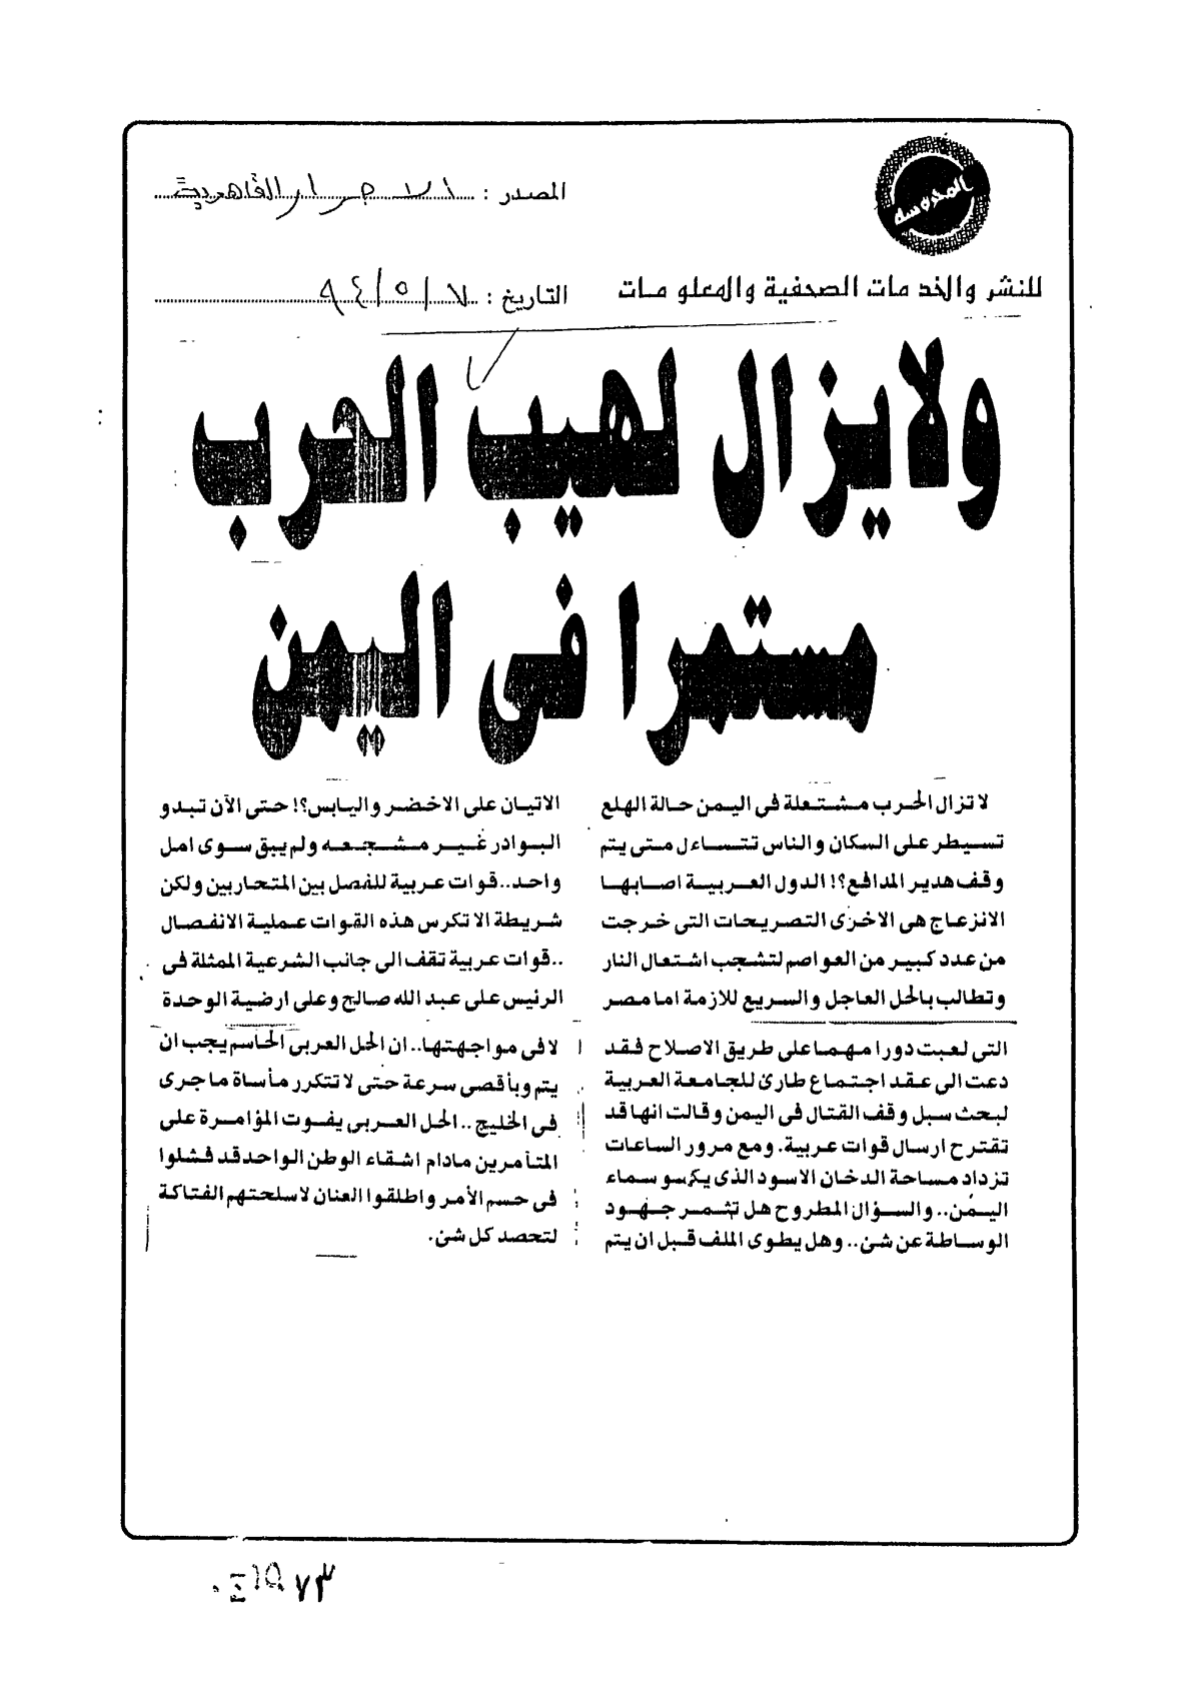 المحروسه
المصدر : الاحرار القاهرية
للنشر والخدمات الصحفية والمعلومات
التاريخ : ٧ / ٥ / ٩٤
ولايزال لهيب الحرب
مستمرا فى اليمن
لاتزال الحرب مشتعلة فى اليمن حالة الهلع
تسيطر على السكان والناس تتساءل متى يتم
وقف هدير المدافع؟! الدول العربية اصابها
الانزعاج هى الاخرى التصريحات التى خرجت
من عدد كبير من العواصم لتشجب اشتعال النار
وتطالب بالحل العاجل والسريع للازمة اما مصر
التى لعبت دورا مهما على طريق الاصلاح فقد
دعت الى عقد اجتماع طارئ للجامعة العربية
لبحث سبل وقف القتال فى اليمن وقالت انها قد
تقترح ارسال قوات عربية. ومع مرور الساعات
تزداد مساحة الدخان الاسود الذى يكسو سماء
اليمن.. والسؤال المطروح هل تثمر جهود
الوساطة عن شئ.. وهل يطوى الملف قبل ان يتم
الاتيان على الاخضر واليابس؟! حتى الآن تبدو
البوادر غير مشجعه ولم يبق سوى امل
واحد.. قوات عربية للفصل بين المتحاربين ولكن
شريطة الا تكرس هذه القوات عملية الانفصال
..قوات عربية تقف الى جانب الشرعية الممثلة فى
الرئيس على عبد الله صالح وعلى ارضية الوحدة
لا فى مواجهتها.. ان الحل العربى الحاسم يجب ان
يتم وبأقصى سرعة حتى لا تتكرر مأساة ماجرى
فى الخليج ..الحل العربى يفوت المؤامرة على
المتأمرين مادام اشقاء الوطن الواحد قد فشلوا
فى حسم الأمر واطلقوا العنان لاسلحتهم الفتاكة
لتحصد كل شئ.
٧٣